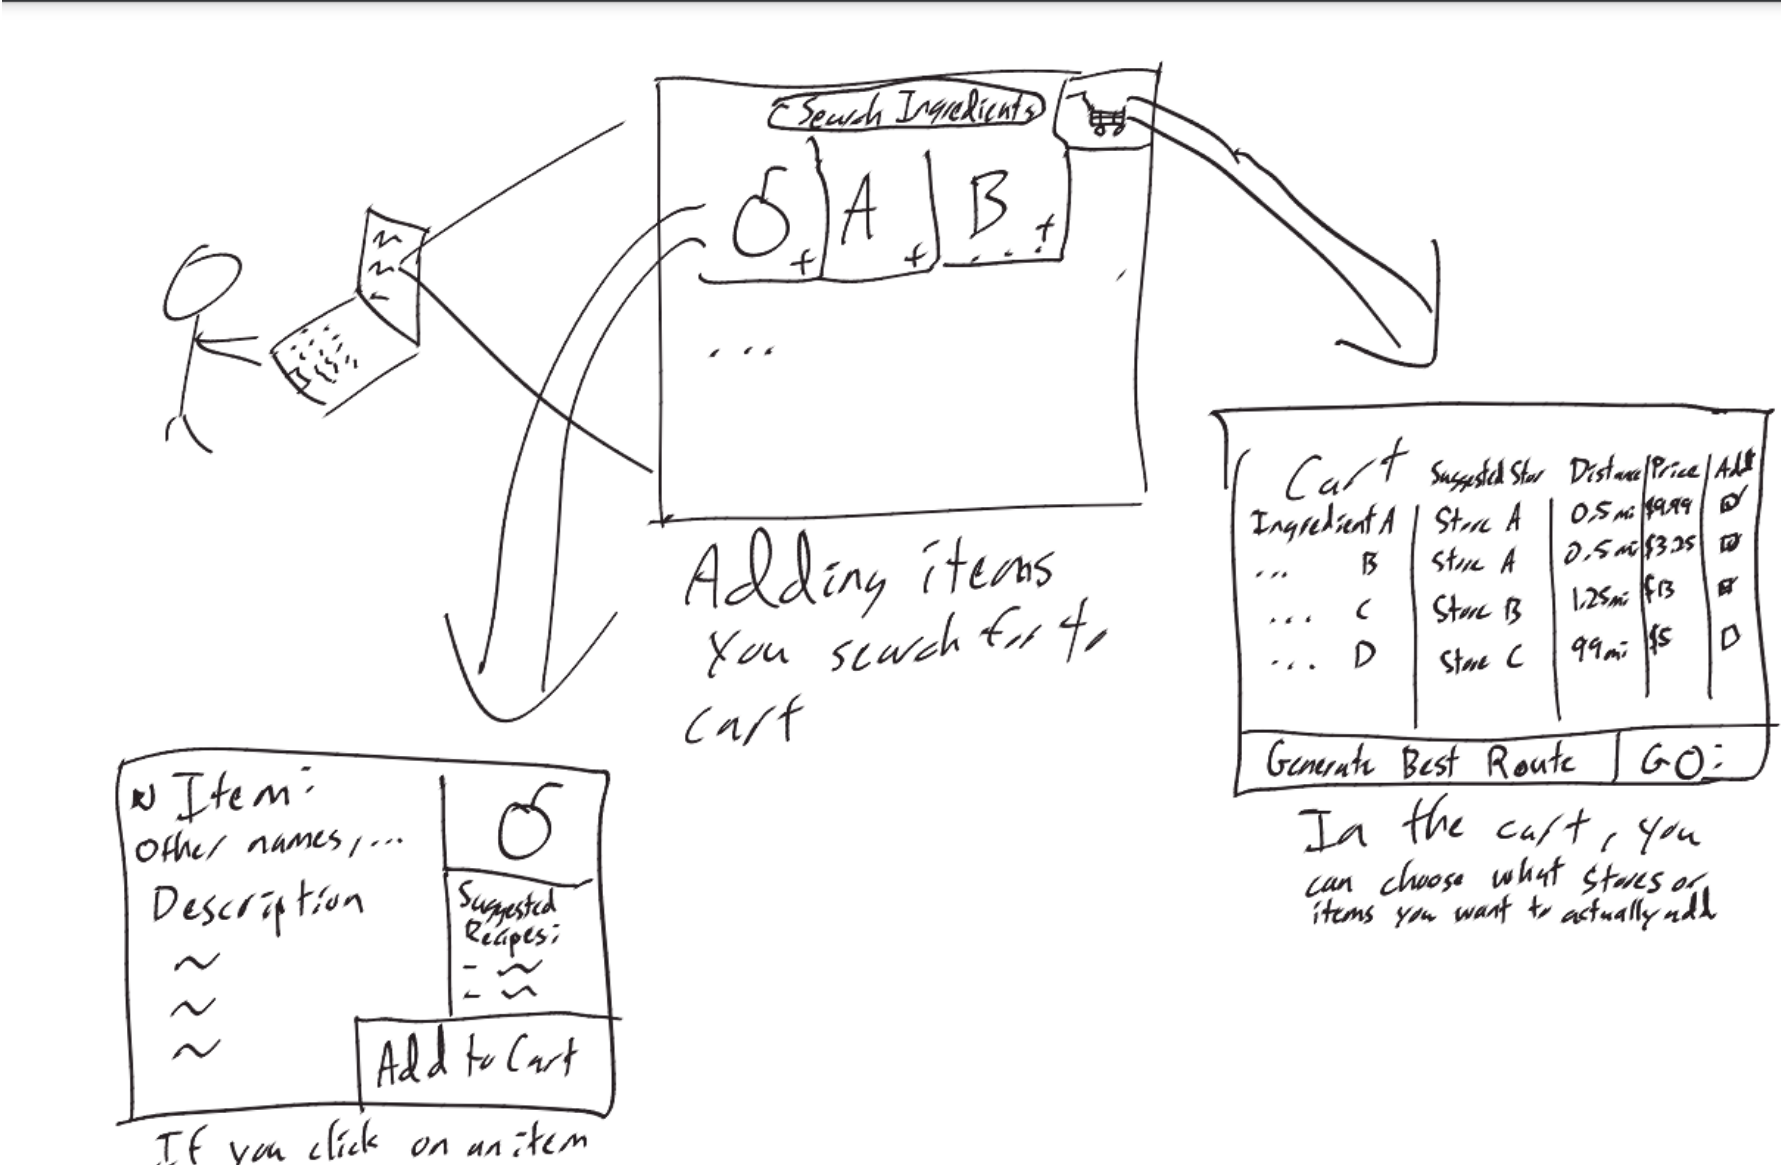 Search Ingredients
A
B
+
+
+
...
...
Adding items
you search for to
cart
Cart Suggested Stor Distance Price Add
Ingredient A Store A 0.5mi $9.99
... B Store A 0.5mi $3.25
... C Store B 1.25mi $13
... D Store C 99mi $5
Generate Best Route GO:
In the cart, you
can choose what stores or
items you want to actually add
Item:
Other names,...
Description
Suggested
Recipes:
-
-
Add to Cart
If you click on an item